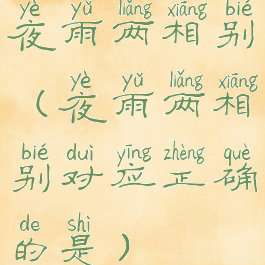 yè yǔ liǎng xiāng bié
夜雨两相别
yè yǔ liǎng xiāng
（夜雨两相
bié duì yīng zhèng què
别对应正确
de shì
的是）